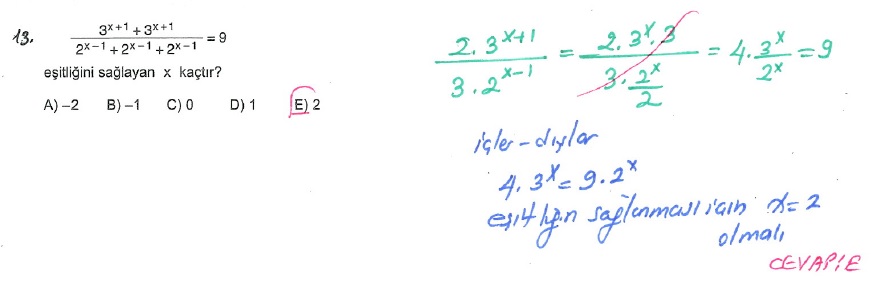 13. (3^(x+1) + 3^(x+1)) / (2^(x-1) + 2^(x-1) + 2^(x-1)) = 9
eşitliğini sağlayan x kaçtır?
A) –2 B) –1 C) 0 D) 1 E) 2
(2. 3^(x+1)) / (3 . 2^(x-1)) = (2. 3^x. 3) / (3. 2^x/2) = 4. 3^x/2^x = 9
içler - dışlar
4. 3^x = 9 . 2^x
eşitliğin sağlanması için x = 2
olmalı
CEVAP: E